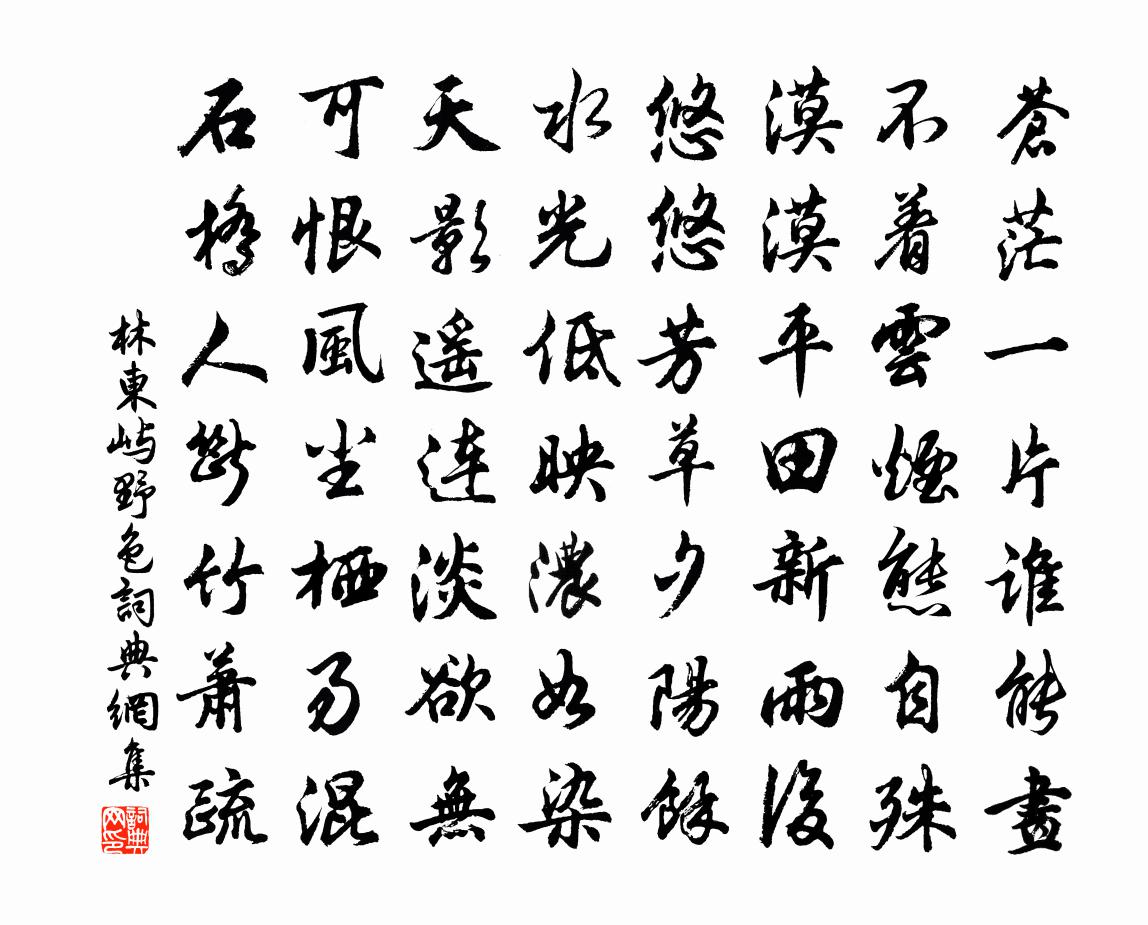 蒼茫一片谁能畫
不着雲煙態自殊
漠漠平田新雨後
悠悠芳草夕陽餘
水光低映濃如染
天影遥连淡欲無
可恨風尘栖易混
石橋人斷竹蕭疏
林東屿野色詞典網集
詞典
网印